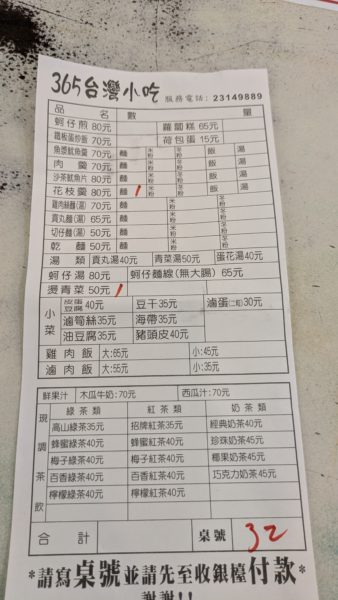 365台灣小吃 服務電話:23149889
品 名 數 量
蚵仔煎 80元 蘿蔔糕 65元
鐵板蛋炒飯 70元 荷包蛋 15元
魚漿魷魚羹 70元 麵 米粉 冬粉 飯 湯
肉 羹 70元 麵 米粉 冬粉 飯 湯
沙茶魷魚片 80元 麵 米粉 冬粉 飯 湯
花枝羹 80元 麵 / 米粉 冬粉 飯 湯
雞肉絲麵(湯) 70元 麵 米粉 冬粉
貢丸麵(湯) 65元 麵 米粉 冬粉
切仔麵(湯) 50元 麵 米粉 冬粉
乾 麵 50元 麵 米粉 冬粉
湯 類 貢丸湯40元 青菜湯50元 蛋花湯40元
蚵仔湯 80元 蚵仔麵線(無大腸) 65元
燙青菜 50元 /
小菜 皮蛋豆腐 40元 豆干35元 滷蛋(二粒)30元
滷筍絲35元 海帶35元
油豆腐35元 豬頭皮40元
雞 肉 飯 大:65元 小:45元
滷 肉 飯 大:55元 小:35元
鮮果汁 木瓜牛奶:70元 西瓜汁:70元
現調茶飲 綠 茶 類 紅 茶 類 奶 茶 類
高山綠茶35元 招牌紅茶35元 經典奶茶40元
蜂蜜綠茶40元 蜂蜜紅茶40元 珍珠奶茶45元
梅子綠茶40元 梅子紅茶40元 椰果奶茶45元
百香綠茶40元 百香紅茶40元 巧克力奶茶45元
檸檬綠茶40元 檸檬紅茶40元
合 計 桌號 32
*請寫桌號並請先至收銀檯付款*
謝謝!!